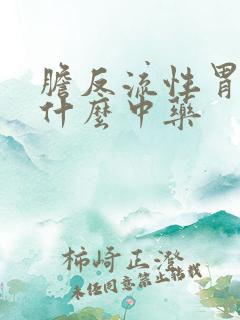 膽反流性胃
什麼中藥
柿崎正澄
未经同意禁止转载